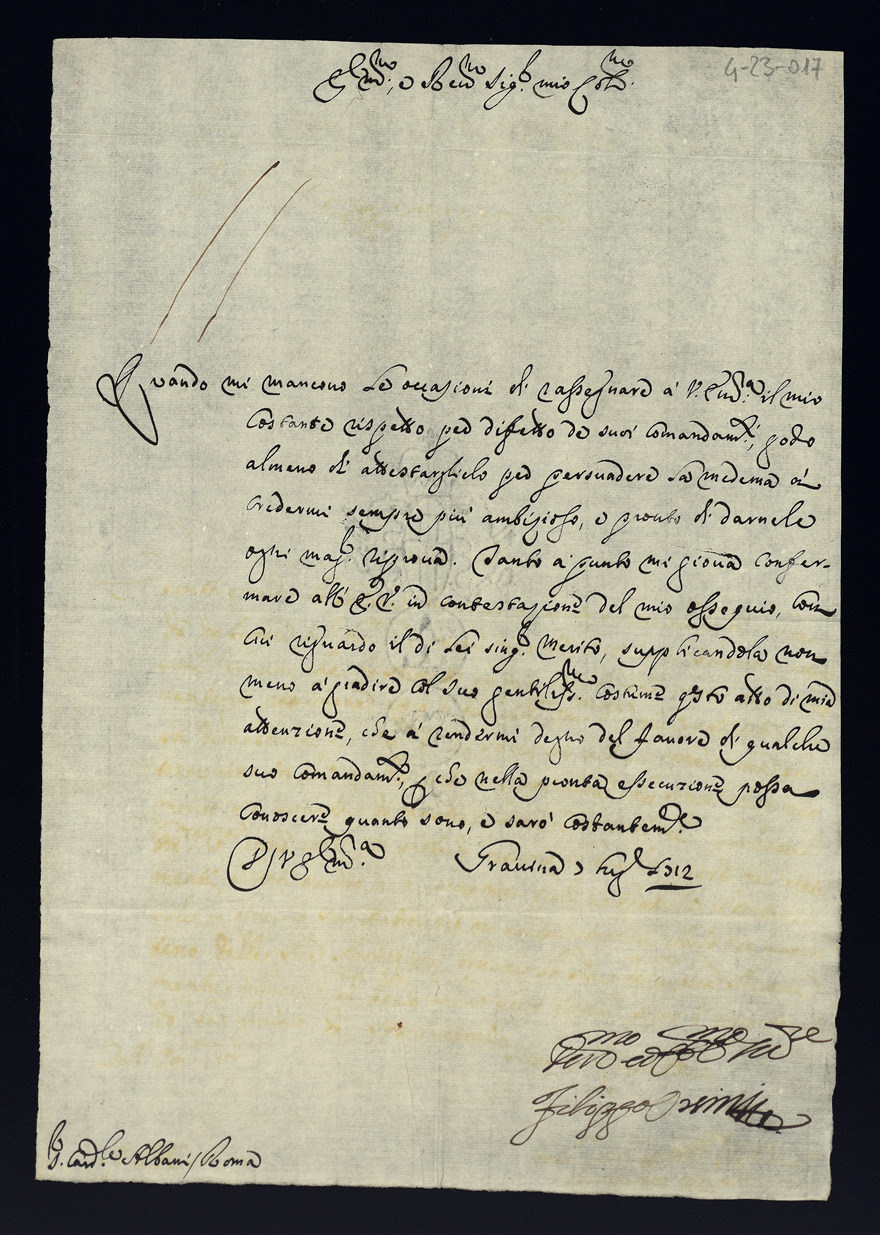 4-23-017
Em.mo, e Reu.mo Sig.r mio Col.mo
Quando mi mancono le occasioni di rassegnare à V. Em.a il mio
costante rispetto per difetto de suoi comandam.ti, godo
almeno di attestarglielo per persuadere la medema à
credermi sempre più ambizioso, e pronto di darnele
ogni mag.r riproua. Tanto a punto mi gioua confer-
mare all' E. V. in contestazion.e del mio ossequio, con
cui riguardo il di Lei sing.r merito, supplicandola non
meno à gradire col suo gentiliss.mo costume q.sto atto di mia
attenzion.e, che à rendermi degno del fauore di qualche
suo comandam.to, che nella pronta essecuzion.e possa
conoscere quanto sono, e sarò costantem.te
D. V. Em.a Grauina 2 lug.o 1712
Deu.mo et Obb.mo Ser.re
Filippo Orsini
S. Card.le Albani / Roma